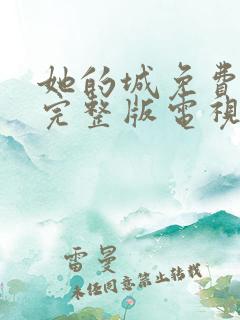 她的城免費
完整版電視
雷曼
未经同意禁止转载